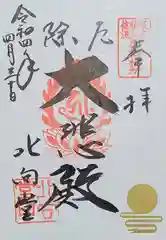 奉拝
厄除
大悲殿
北向堂
令和四年
四月三十日